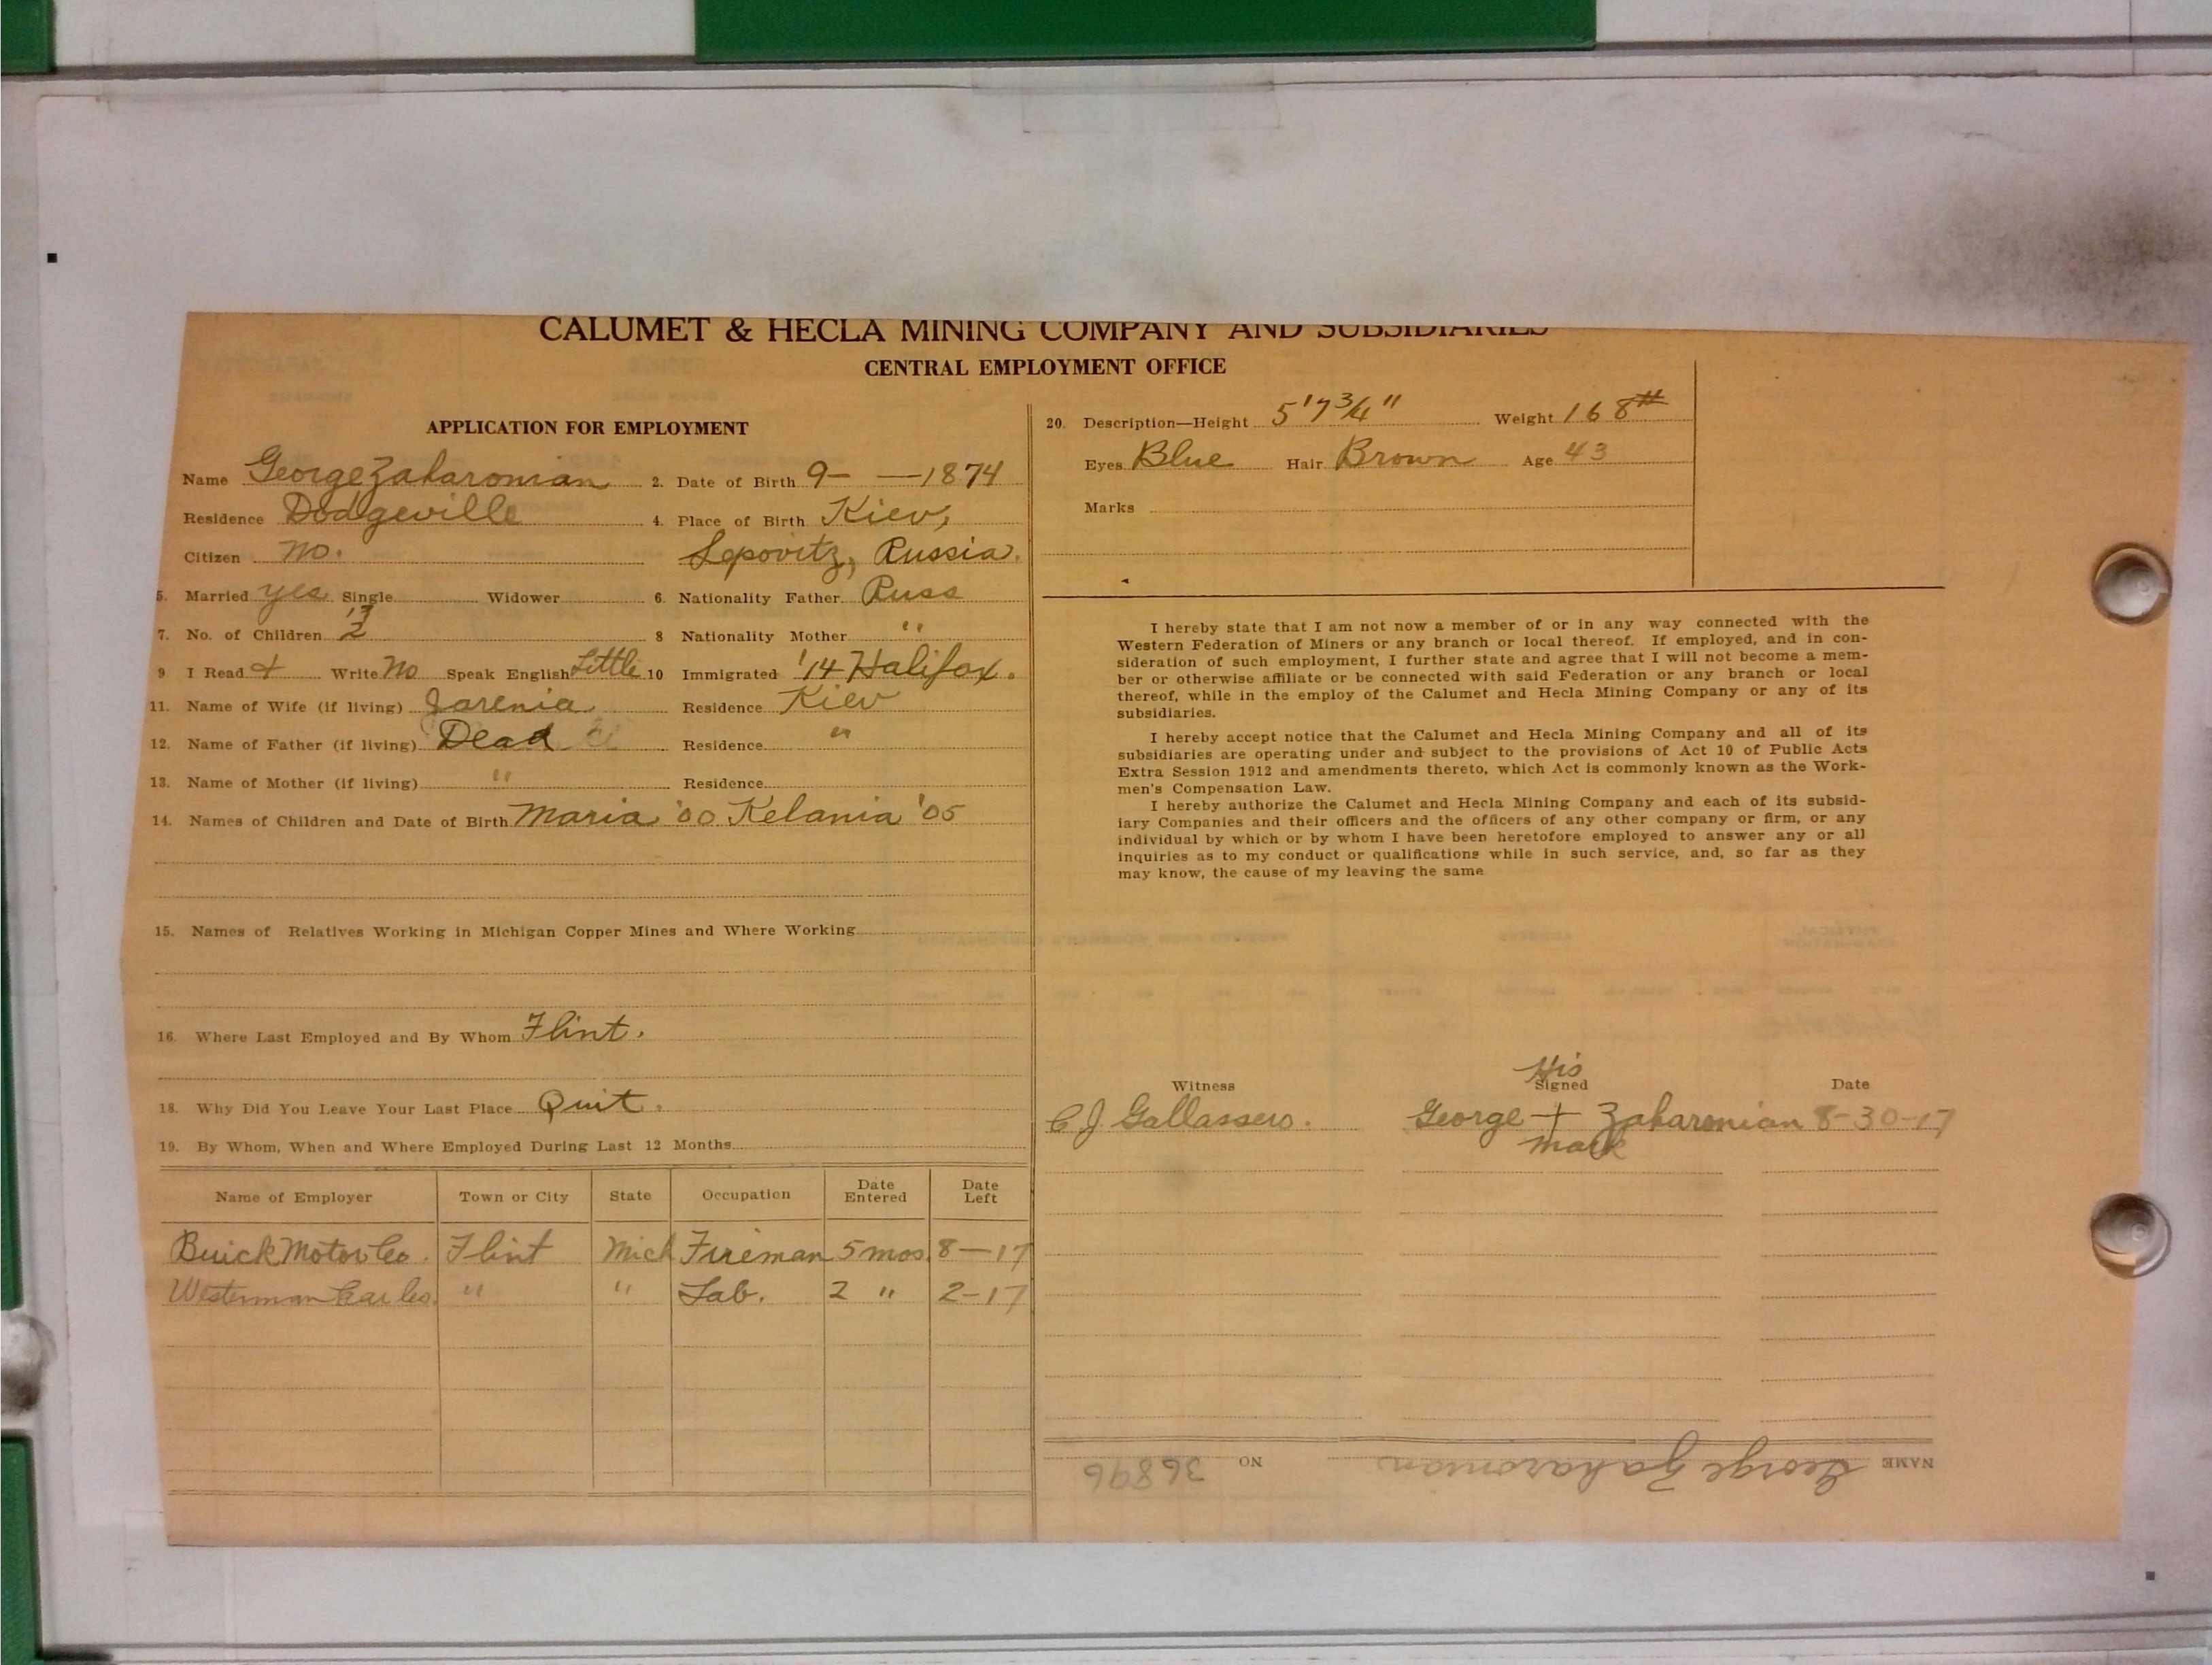 CALUMET & HECLA MINING COMPANY AND SUBSIDIARIES
CENTRAL EMPLOYMENT OFFICE
APPLICATION FOR EMPLOYMENT
Name George Zaharonian 2. Date of Birth 9- —1874
Residence Dodgeville 4. Place of Birth Kiev,
Citizen No. Lepovitz, Russia.
5. Married yes Single Widower 6. Nationality Father Russ
7. No. of Children 2 8 Nationality Mother "
9 I Read + Write No Speak English Little 10 Immigrated '14 Halifax.
11. Name of Wife (if living) Jarenia Residence Kiev
12. Name of Father (if living) Dead Residence "
13. Name of Mother (if living) " Residence
14. Names of Children and Date of Birth Maria '00 Kelania '05
15. Names of Relatives Working in Michigan Copper Mines and Where Working
16. Where Last Employed and By Whom Flint.
18. Why Did You Leave Your Last Place Quit.
19. By Whom, When and Where Employed During Last 12 Months
Name of Employer Town or City State Occupation Date Entered Date Left
Buick Motor Co. Flint Mich Fireman 5 mos. 8—17
Westerman Car Co. " " Lab. 2 " 2-17
20. Description—Height 5'7 3/4" Weight 168#
Eyes Blue Hair Brown Age 43
Marks
I hereby state that I am not now a member of or in any way connected with the
Western Federation of Miners or any branch or local thereof. If employed, and in con-
sideration of such employment, I further state and agree that I will not become a mem-
ber or otherwise affiliate or be connected with said Federation or any branch or local
thereof, while in the employ of the Calumet and Hecla Mining Company or any of its
subsidiaries.
I hereby accept notice that the Calumet and Hecla Mining Company and all of its
subsidiaries are operating under and subject to the provisions of Act 10 of Public Acts
Extra Session 1912 and amendments thereto, which Act is commonly known as the Work-
men's Compensation Law.
I hereby authorize the Calumet and Hecla Mining Company and each of its subsid-
iary Companies and their officers and the officers of any other company or firm, or any
individual by which or by whom I have been heretofore employed to answer any or all
inquiries as to my conduct or qualifications while in such service, and, so far as they
may know, the cause of my leaving the same
His
Witness Signed Date
C J Gallassero. George + Zaharonian 8-30-17
mark
NAME George Zaharonian NO 36896